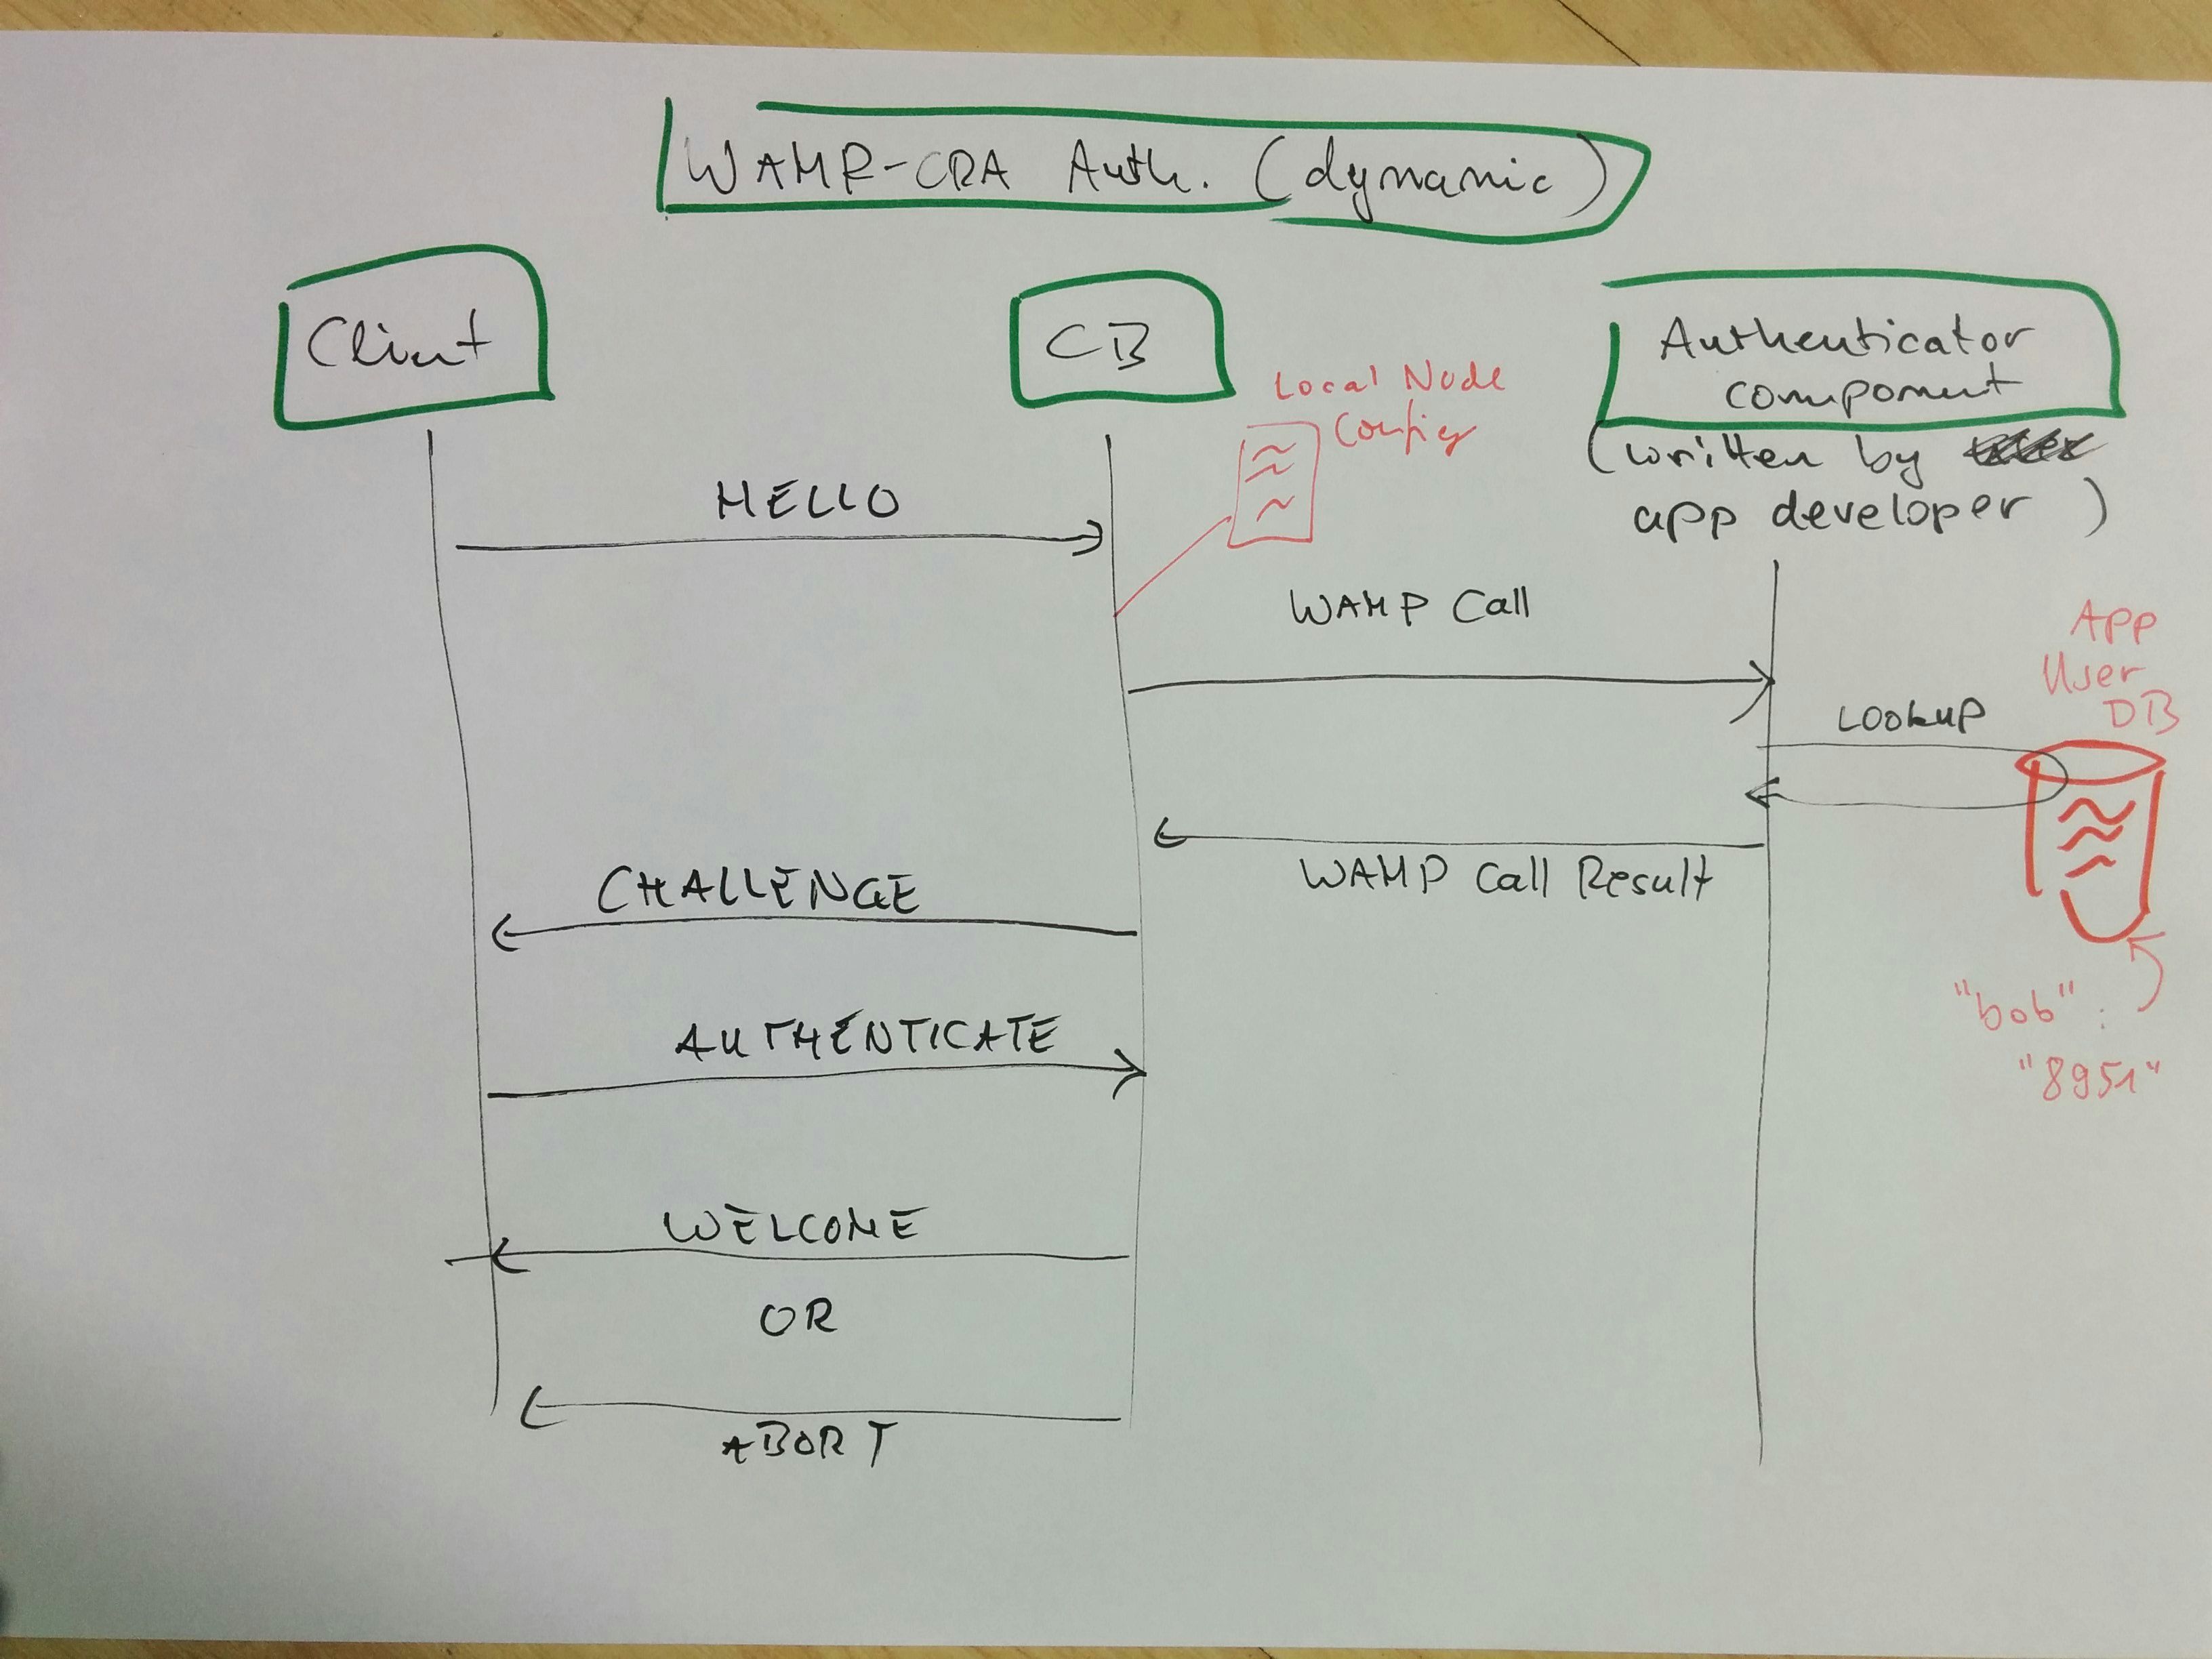 WAMP-CRA Auth. (dynamic)
Client
CB
Authenticator
component
(written by
app developer)
Local Node
Config
HELLO
WAMP Call
App
User
DB
LOOKUP
WAMP Call Result
CHALLENGE
"bob":
"8951"
AUTHENTICATE
WELCOME
OR
ABORT